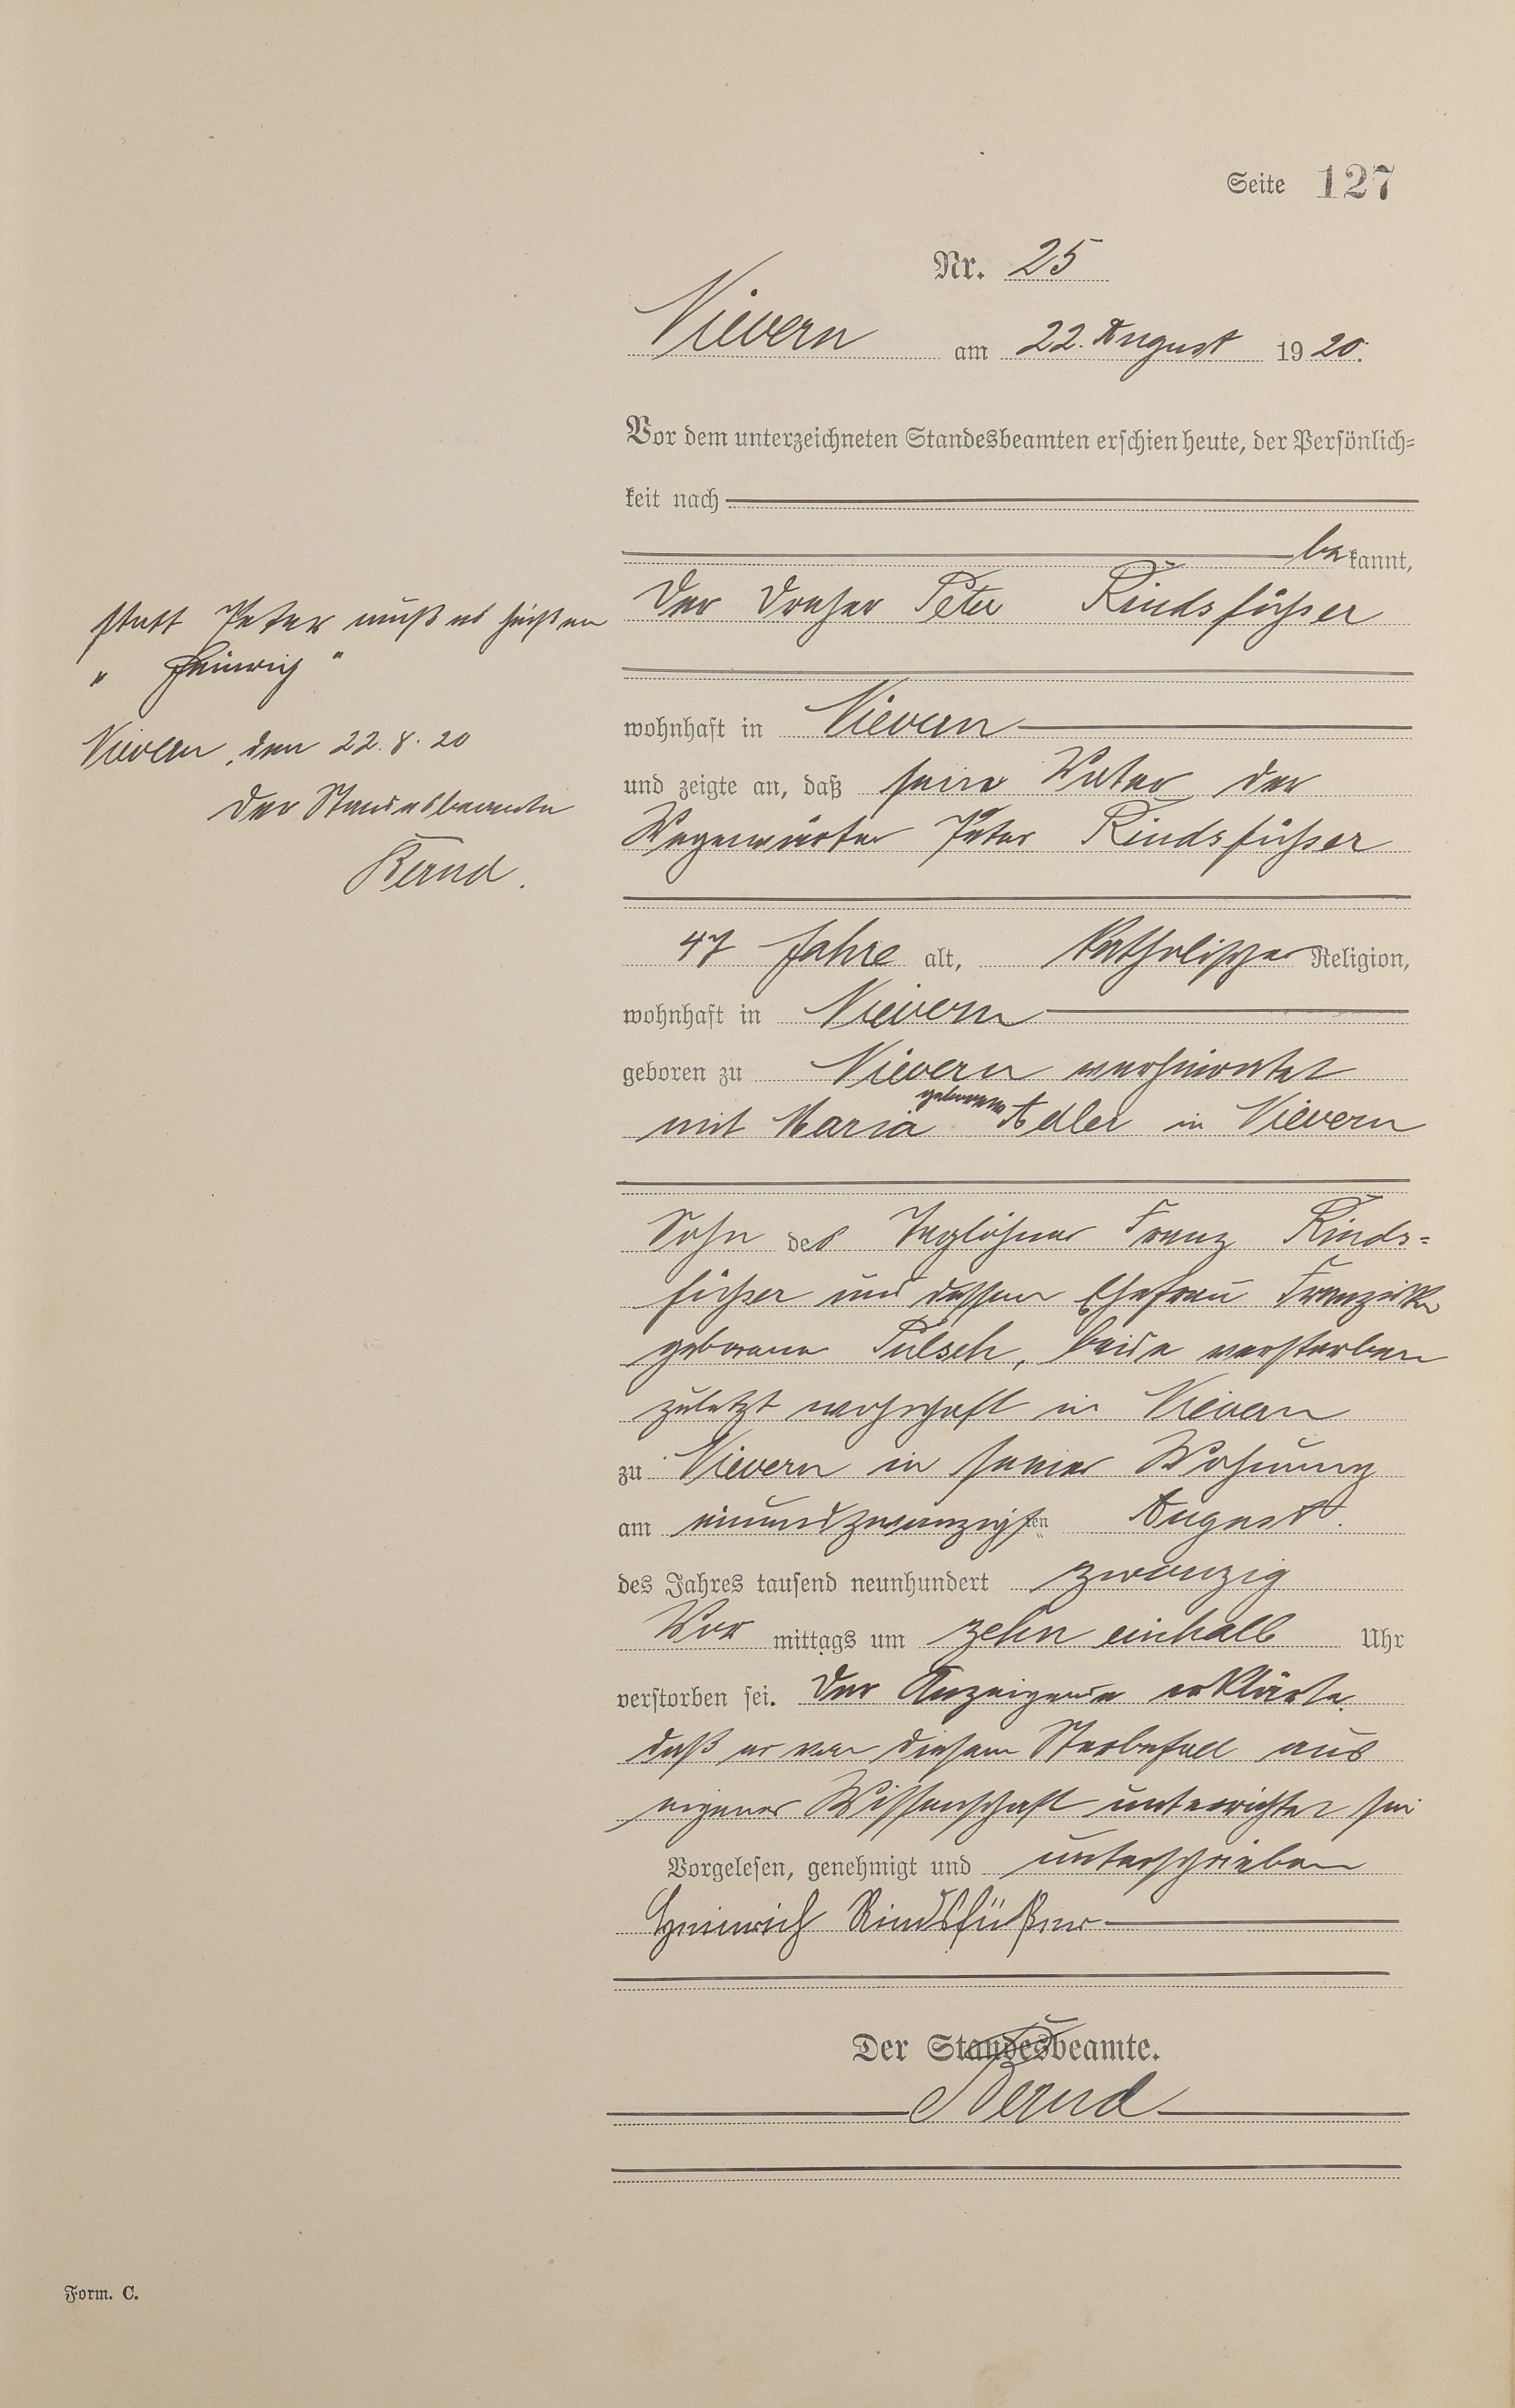 Seite 127
Nr. 25
Nievern am 22. August 1920.
Vor dem unterzeichneten Standesbeamten erschien heute, der Persönlich-
keit nach
bekannt,
der Dreher Peter Rindsfüßer
wohnhaft in Nievern
und zeigte an, daß sein Vater der
Wegewärter Peter Rindsfüßer
47 Jahre alt, katholischer Religion,
wohnhaft in Nievern
geboren zu Nievern verheiratet
mit Maria geborene Adler in Nievern
Sohn des Taglöhner Franz Rinds-
füßer und dessen Ehefrau Franziska
geborene Pülsch, beide verstorben
zuletzt wohnhaft in Nievern
zu Nievern in seiner Wohnung
am einundzwanzigsten August
des Jahres tausend neunhundert zwanzig
Vor mittags um zehn einhalb Uhr
verstorben sei. Der Anzeigende erklärte,
daß er von diesem Sterbefall aus
eigener Wissenschaft unterrichtet sei
Vorgelesen, genehmigt und unterschrieben
Heinrich Rindsfüßer
Der Standesbeamte.
Bernd
statt Peter muß es heißen
" Heinrich "
Nievern, den 22.8.20
Der Standesbeamte
Bernd.
Form. C.